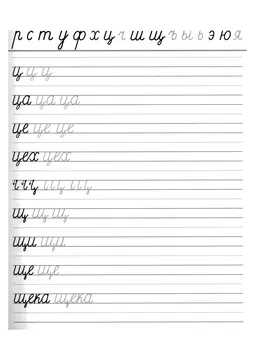 р с т у ф х ц ч ш щ ъ ы ь э ю я
ц ц ц
ца ца ца
це це це
цех цех
щ щ щ
щи щи
ще ще
щека щека